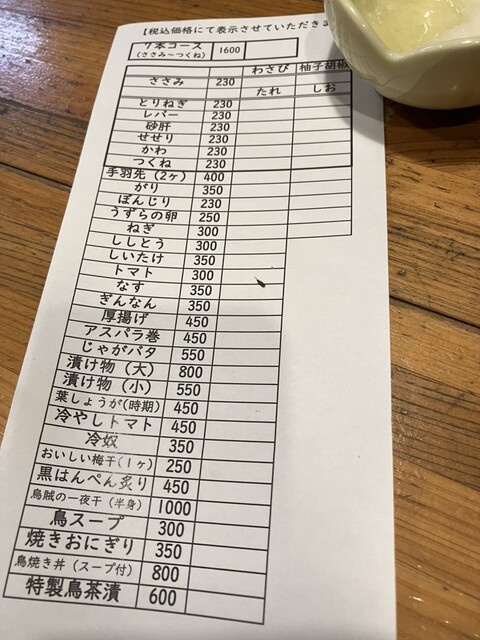 【税込価格にて表示させていただき
7本コース
(ささみ～つくね) 1600
わさび 柚子胡椒
ささみ 230
たれ しお
とりねぎ 230
レバー 230
砂肝 230
せせり 230
かわ 230
つくね 230
手羽先（2ヶ） 400
がり 350
ぼんじり 230
うずらの卵 250
ねぎ 300
ししとう 300
しいたけ 350
トマト 300
なす 350
ぎんなん 350
厚揚げ 450
アスパラ巻 450
じゃがバタ 550
漬け物（大） 800
漬け物（小） 550
葉しょうが(時期) 450
冷やしトマト 450
冷奴 350
おいしい梅干(1ヶ) 250
黒はんぺん炙り 450
烏賊の一夜干（半身） 1000
鳥スープ 300
焼きおにぎり 350
鳥焼き丼（スープ付） 800
特製鳥茶漬 600